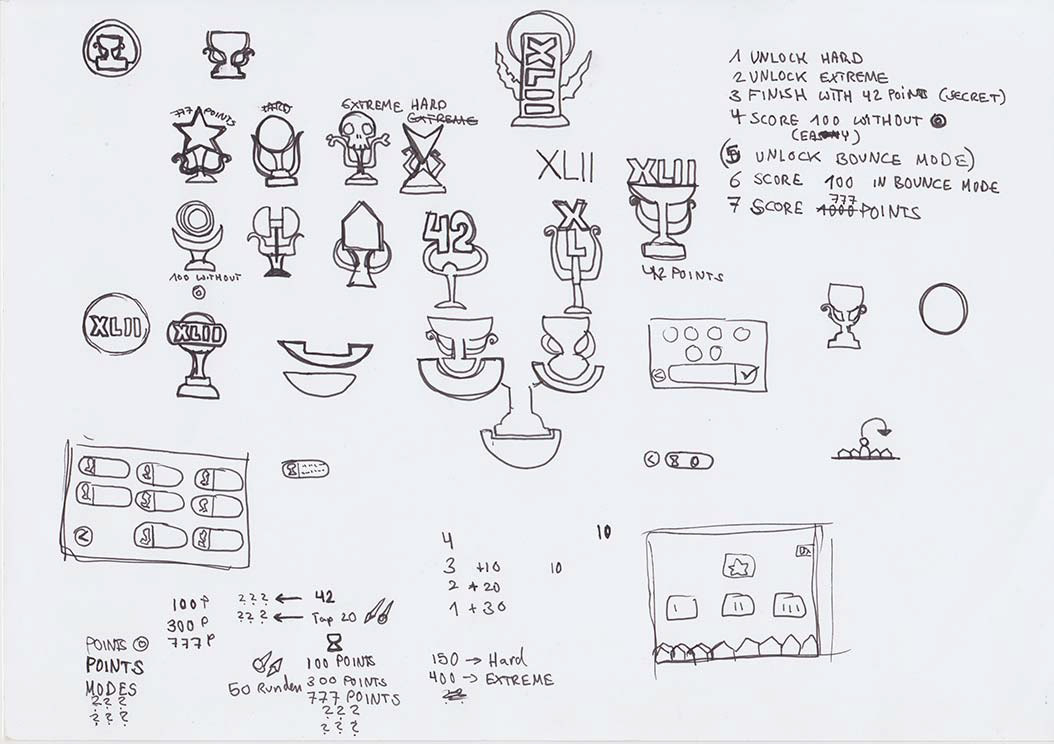 XLII
1 UNLOCK HARD
2 UNLOCK EXTREME
3 FINISH WITH 42 POINTS (SECRET)
4 SCORE 100 WITHOUT
(EASY)
(5 UNLOCK BOUNCE MODE)
6 SCORE 100 IN BOUNCE MODE
7 SCORE 1000 777 POINTS
777 POINTS
HARD
EXTREME HARD
EXTREME
XLII
XLII
42
X
L
42 POINTS
100 WITHOUT
XLII
XLII
4
3 +10
2 +20
1 +30
10
10
100 P
300 P
777 P
??? ← 42
??? ← Tap 20
POINTS
POINTS
MODES
???
???
50 Runden
100 POINTS
300 POINTS
777 POINTS
???
???
150 → Hard
400 → EXTREME
I
II
III